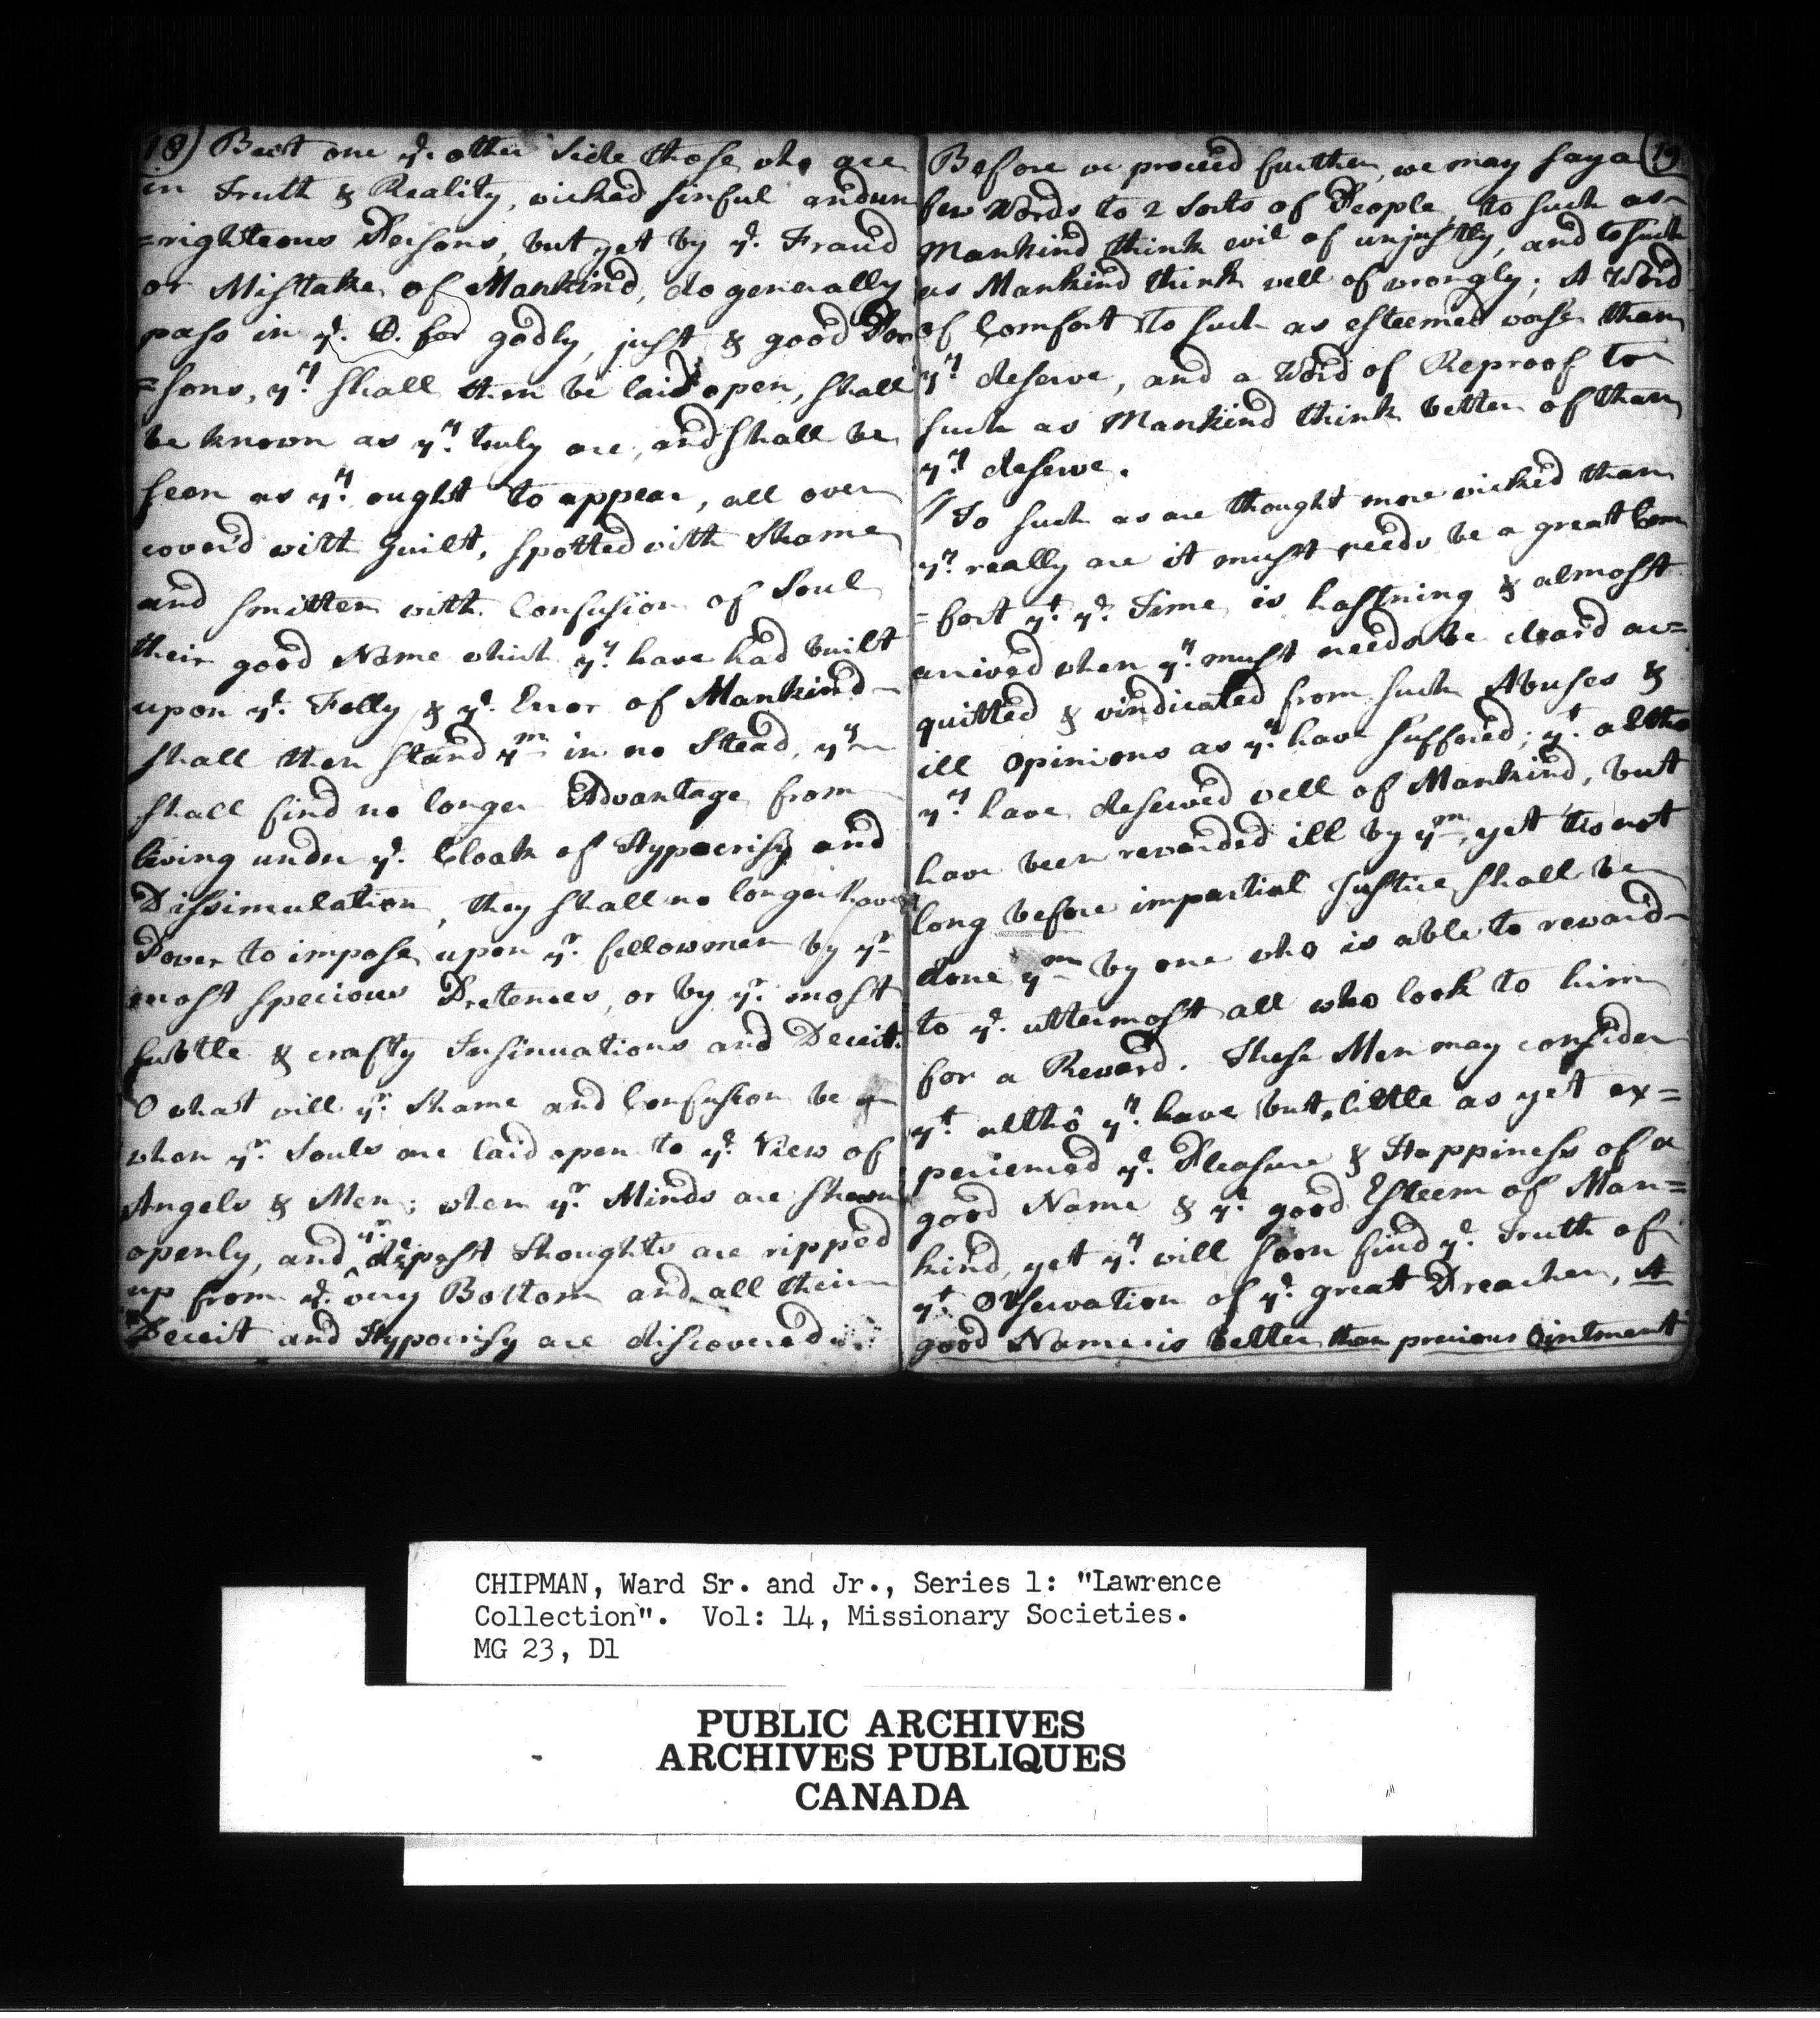 18) But one ye. other Side those who are
in Truth & Reality, wicked sinful and un
=righteous Persons, but yet by ye. Fraud
or Mistake of Mankind, do generally
pass in ye. D. for godly, just & good Per
=sons, yy. shall then be laid open, shall
be known as yy. truly are, and shall be
seen as yy. ought to appear, all over
cover'd with Guilt, spotted with Shame
and smitten with Confusion of Soul
their good Name which yy. have had built
upon ye. Folly & ye. Error of Mankind
shall then stand ym in no Stead, yy
shall find no longer Advantage from
living under ye. Cloak of Hypocrisy and
Dissimulation, they shall no longer have
Power to impose upon yr. fellowmen by yr
most specious Pretences, or by yr. most
subtle & crafty Insinuations and Deceit.
O what will yr. Shame and Confusion be
when yr. Souls are laid open to ye. View of
Angels & Men; when yr. Minds are shewn
openly, and yr. depest Thoughts are ripped
up from ye. very Bottom and all their
Deceit and Hypocrisy are discovered.
Before we proceed further, we may say a (19
few Words to 2 Sorts of People, to such as
Mankind think evil of unjustly, and to such
as Mankind think well of wrongly; A Word
of Comfort to such as esteemed worse than
yy. deserve, and a Word of Reproof to
such as Mankind think better of than
yy. deserve.
To such as are thought more wicked than
yy. really are it must needs be a great Com
=fort yt. ye. Time is hastning & almost
arrived when yy. must needs be clear'd ac=
quitted & vindicated from such Abuses &
ill Opinions as yy. have suffered; yt. altho
yy. have deserved well of Mankind, but
have been rewarded ill by ym, yet tis not
long before impartial Justice shall be
done ym by one who is able to reward
to ye. uttermost all who look to him
for a Reward. These Men may consider
yt. altho yy. have but little as yet ex=
perienced ye. Pleasure & Happiness of a
good Name & ye. good Esteem of Man=
kind, yet yy. will soon find ye. Truth of
yt. Observation of ye. great Preacher, A
good Name is better than precious Ointment
CHIPMAN, Ward Sr. and Jr., Series 1: "Lawrence
Collection". Vol: 14, Missionary Societies.
MG 23, D1
PUBLIC ARCHIVES
ARCHIVES PUBLIQUES
CANADA